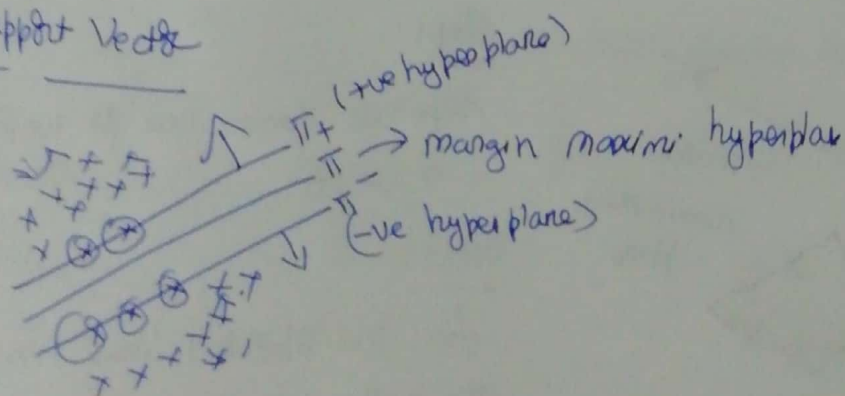 pport Vector
π+ (+ve hyperplane)
π → margin maximi hyperplan
π
(-ve hyperplane)